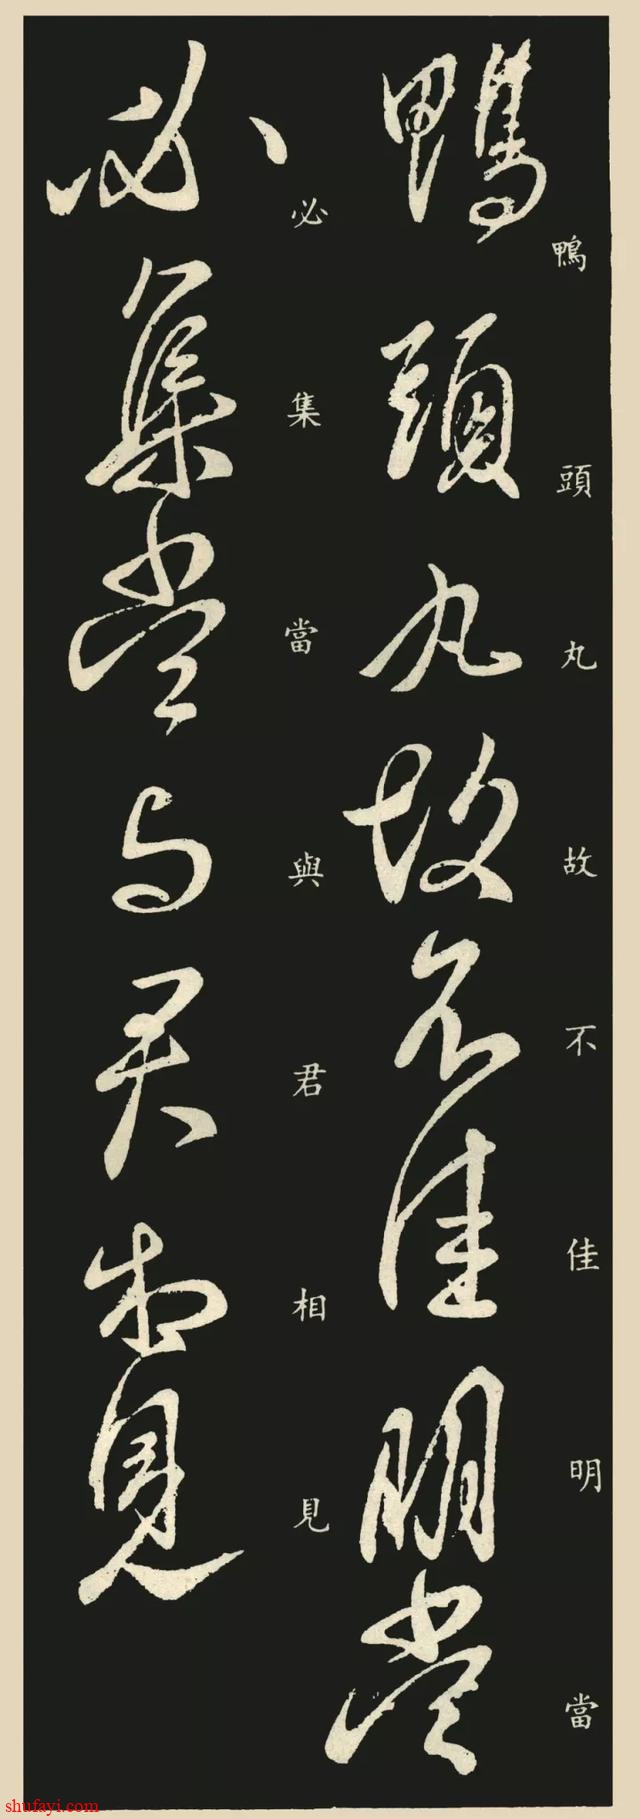 鴨頭丸故不佳明當
鴨頭丸故不佳明當
必集當與君相見
必集當與君相見
shufayi.com